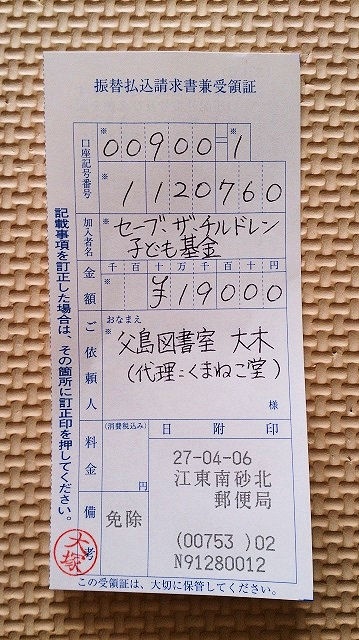 振替払込請求書兼受領証
口座記号番号
※ 00900-※1
※ 1120760
加入者名
※ セーブ・ザ・チルドレン
子ども基金
金額
千百十万千百十円
※ ¥19000
ご依頼人
おなまえ
※ 父島図書室 大木
(代理:くまねこ堂)
様
料金
(消費税込み)
円
日附印
27-04-06
江東南砂北
郵便局
(00753 )02
N91280012
備考
免除
大塚
記載事項を訂正した場合は、その箇所に訂正印を押してください。
この受領証は、大切に保管してください。